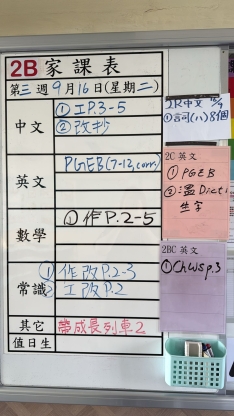 2B 家課表
第三週9月16日(星期二)
中文
①工P.3-5
②改抄
英文
PGEB(7-12,corr)
數學
①作P.2-5
常識
①作改P.2-3
②工改P.2
其它
帶成長列車2
值日生
2R中文
①言同(八)8個
2C 英文
①PGEB
②溫Dict
生字
2BC 英文
①Ch WS p.3